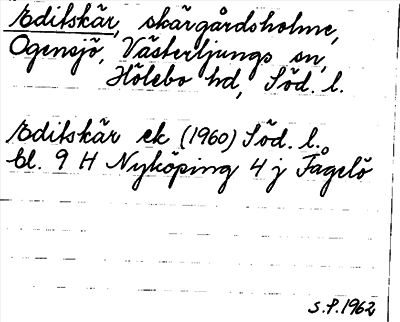 Editskär, skärgårdsholme,
Ogensjö, Västerljungs sn,
Hölebo hd, Söd. l.
Editskär ek (1960) Söd. l.
bl. 9 H Nyköping 4 j Fågelö
S.P. 1962